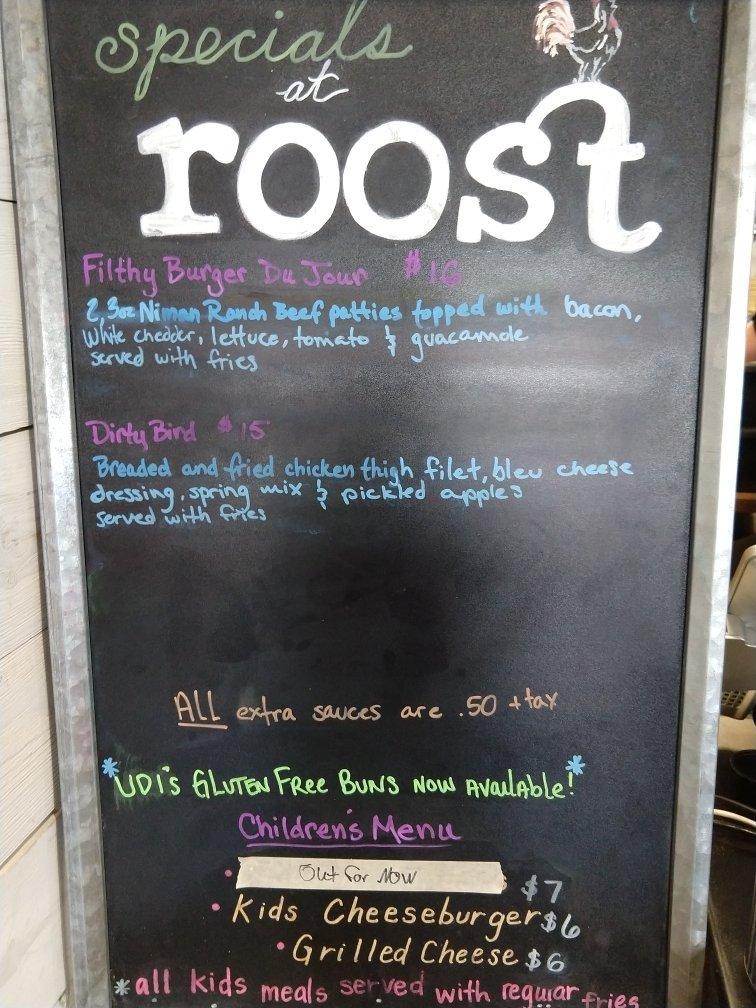 specials
at
roost
Filthy Burger Du Jour $16
2, 3oz Niman Ranch Beef patties topped with bacon,
White chedder, lettuce, tomato & guacamole
served with fries
Dirty Bird $15
Breaded and fried chicken thigh filet, bleu cheese
dressing, spring mix & pickled apples
served with fries
ALL extra sauces are .50 + tax
*UDI's GLUTEN FREE BUNS NOW AVAILABLE!*
Children's Menu
• Out for Now $7
• Kids Cheeseburger $6
• Grilled Cheese $6
*all kids meals served with regular fries